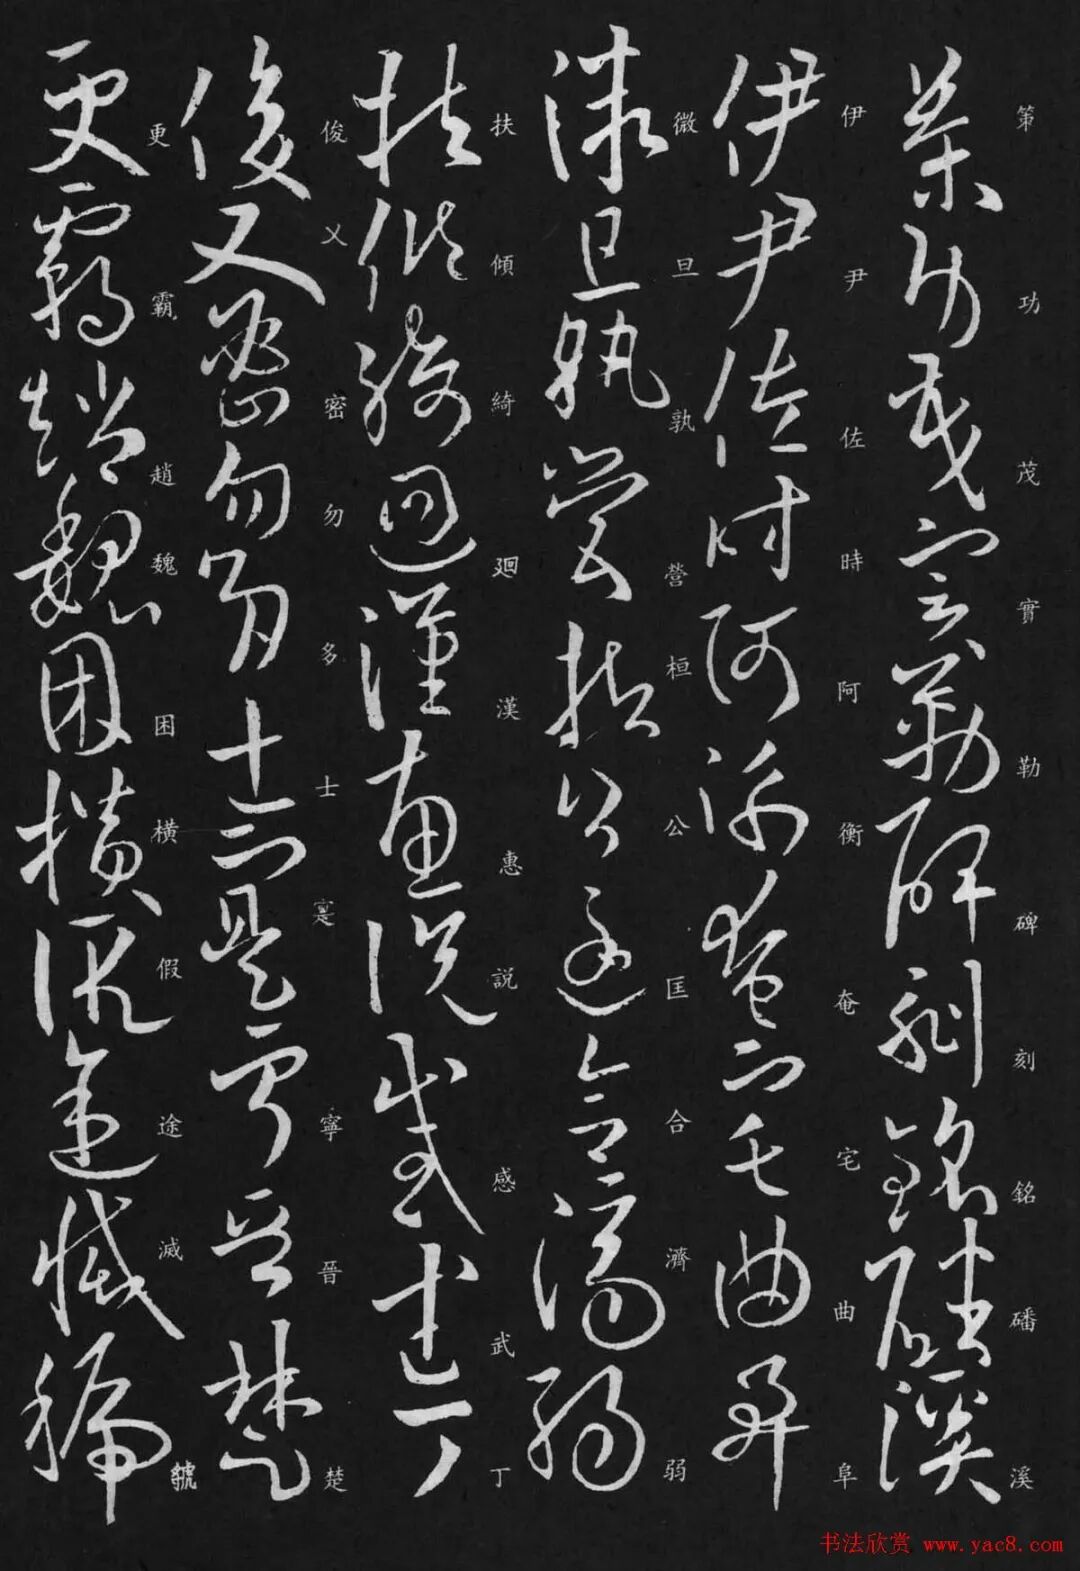 策功茂實勒碑刻銘磻溪
伊尹佐時阿衡奄宅曲阜
微旦孰營桓公匡合濟弱
扶傾綺廻漢惠説感武丁
俊乂密勿多士寔寧晉楚
更霸趙魏困橫假途滅虢
书法欣赏 www.yac8.com